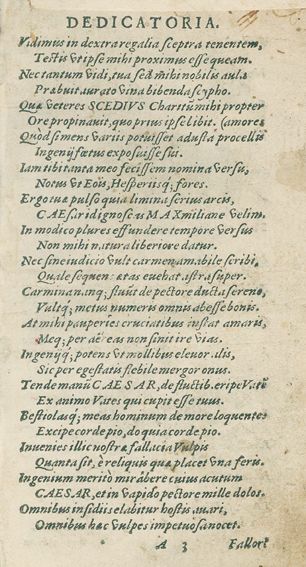 DEDICATORIA.
Vidimus in dextra regalia sceptra tenentem,
Testis ut ipse mihi proximus esse queam.
Nec tantum vidi, tua sed mihi nobilis aula
Præbuit aurato vina bibenda scypho.
Quæ veteres SCEDIUS Charitum mihi propter
Ore propinauit, quo prius ipse libit. (amorē
Quod si mens variis potuisset adusta procellis
Ingenij fœtus exposuisse sui.
Iam tibi tanta meo fecissem nomina versu,
Notus ut Eois, Hesperiisq; fores.
Ergo tua pulso qua limina serius arcis,
CAESar i digne so us MAXmiliane velim.
In modico plures effundere tempore versus
Non mihi natura liberiore datur.
Nec sine iudicio vult carmen amabile scribi,
Quale sequen æt as euehat astra super.
Carmina nanq; fluūt de pectore ducta sereno,
Vultq; metus numeris omnis abesse bonis.
At mihi pauperies cruciatibus instat amaris,
Meq; per ae eas non sinit ire vias.
Ingeniiq; potens ut mollibus eleuor alis,
Sic per egestatū flebile mergor onus.
Tende manū CAESAR, de fluctib. eripe Vatē
Ex animo Vates qui cupit esse tuus.
Bestiolasq; meas hominum de more loquentes
Excipe corde pio, do quia corde pio.
Inuenies illic nostræ fallacia Vulpis
Quanta sit, è reliquis quæ placet una feris.
Ingenium meritò mirabere cuius acutum
CAESAR, et in vapido pectore mille dolos.
Omnibus insidiis elabitur hostis auari,
Omnibus hæc vulpes impetuosa nocet.
A 3 Fallort